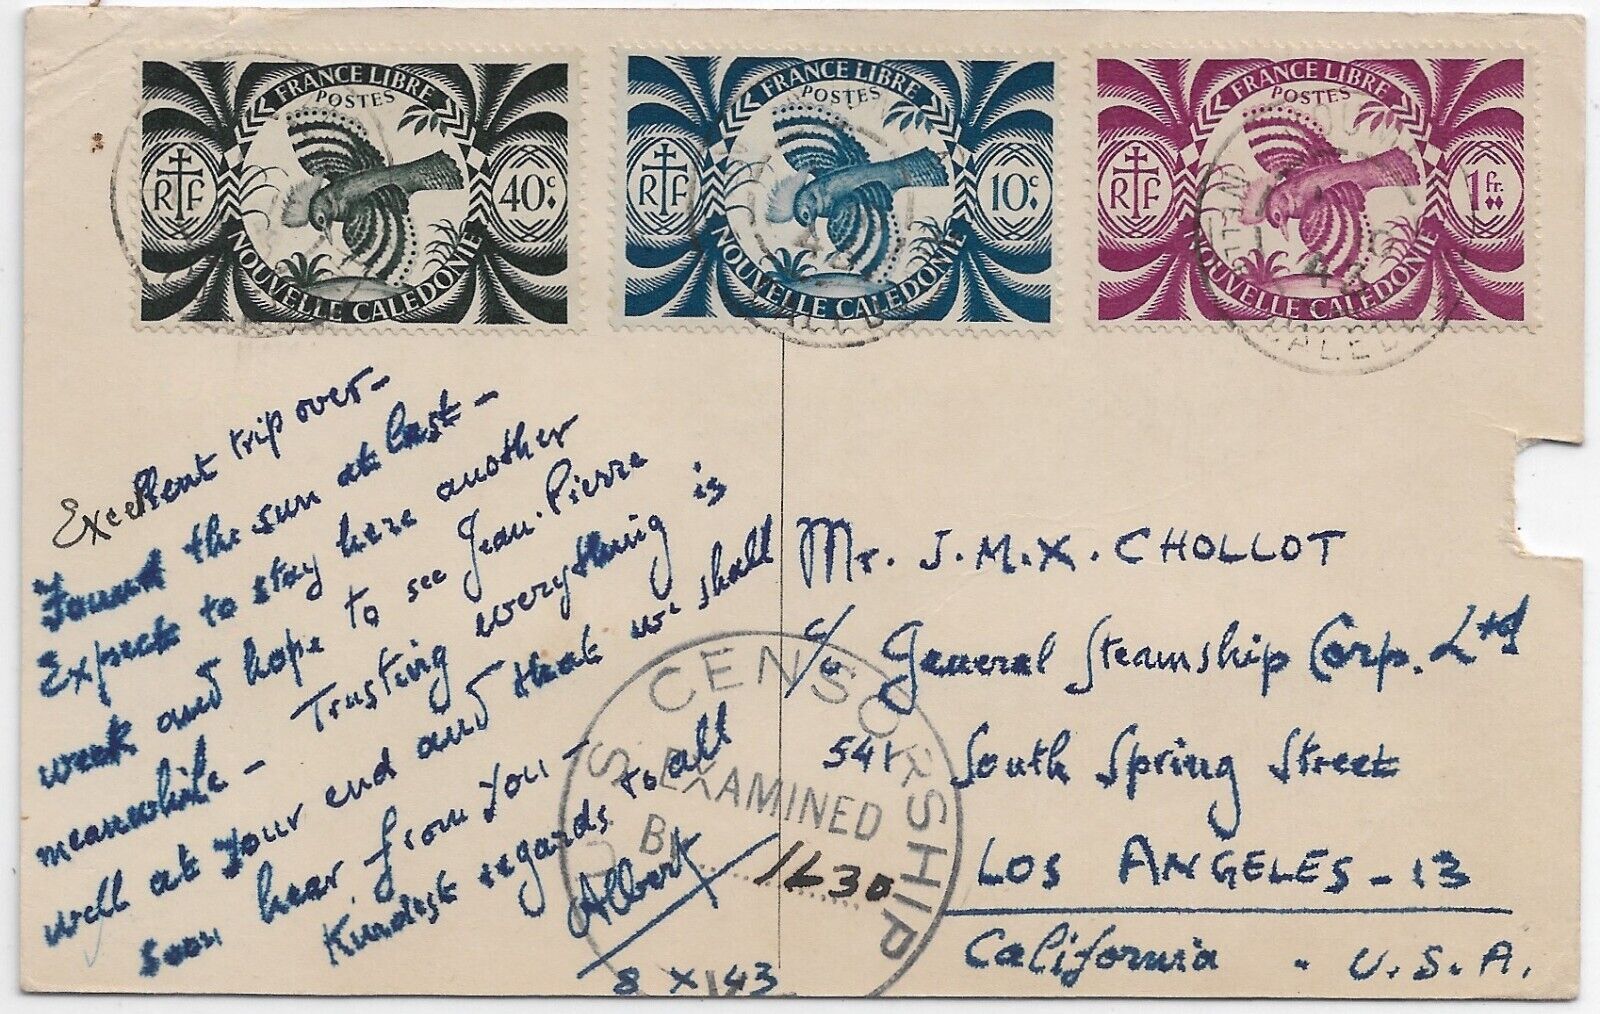 FRANCE LIBRE
POSTES
RF
40c
NOUVELLE CALEDONIE
FRANCE LIBRE
POSTES
RF
10c
NOUVELLE CALEDONIE
FRANCE LIBRE
POSTES
RF
1fr.
NOUVELLE CALEDONIE
Excellent trip over-
Found the sun at last -
Expect to stay here another
week and hope to see Jean-Pierre
meanwhile - Trusting everything is
well at your end and that we shall
soon hear from you -
Kindest regards to all
Albert
8 X 43
CENSORSHIP
EXAMINED
Mr. J.M.X. CHOLLOT
c/o General Steamship Corp. Ltd
541 South Spring Street
LOS ANGELES - 13
California . U.S.A.